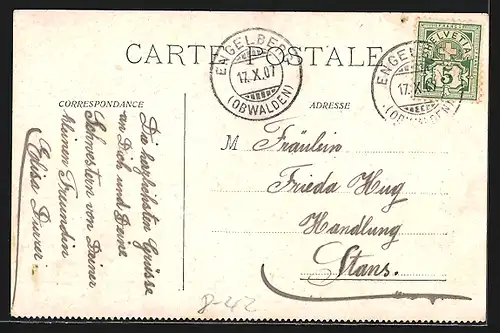 CARTE POSTALE
ENGELBERG
17.X.07
(OBWALDEN)
ENGELBERG
17.X.07
(OBWALDEN)
HELVETIA
5
CORRESPONDANCE
ADRESSE
Die herzlichsten Grüsse
an Dich und Deine
Schwestern von Deiner
kleinen Freundin
Elisa
M Fräulein
Frieda Hug
Handlung
Stans.
D-42